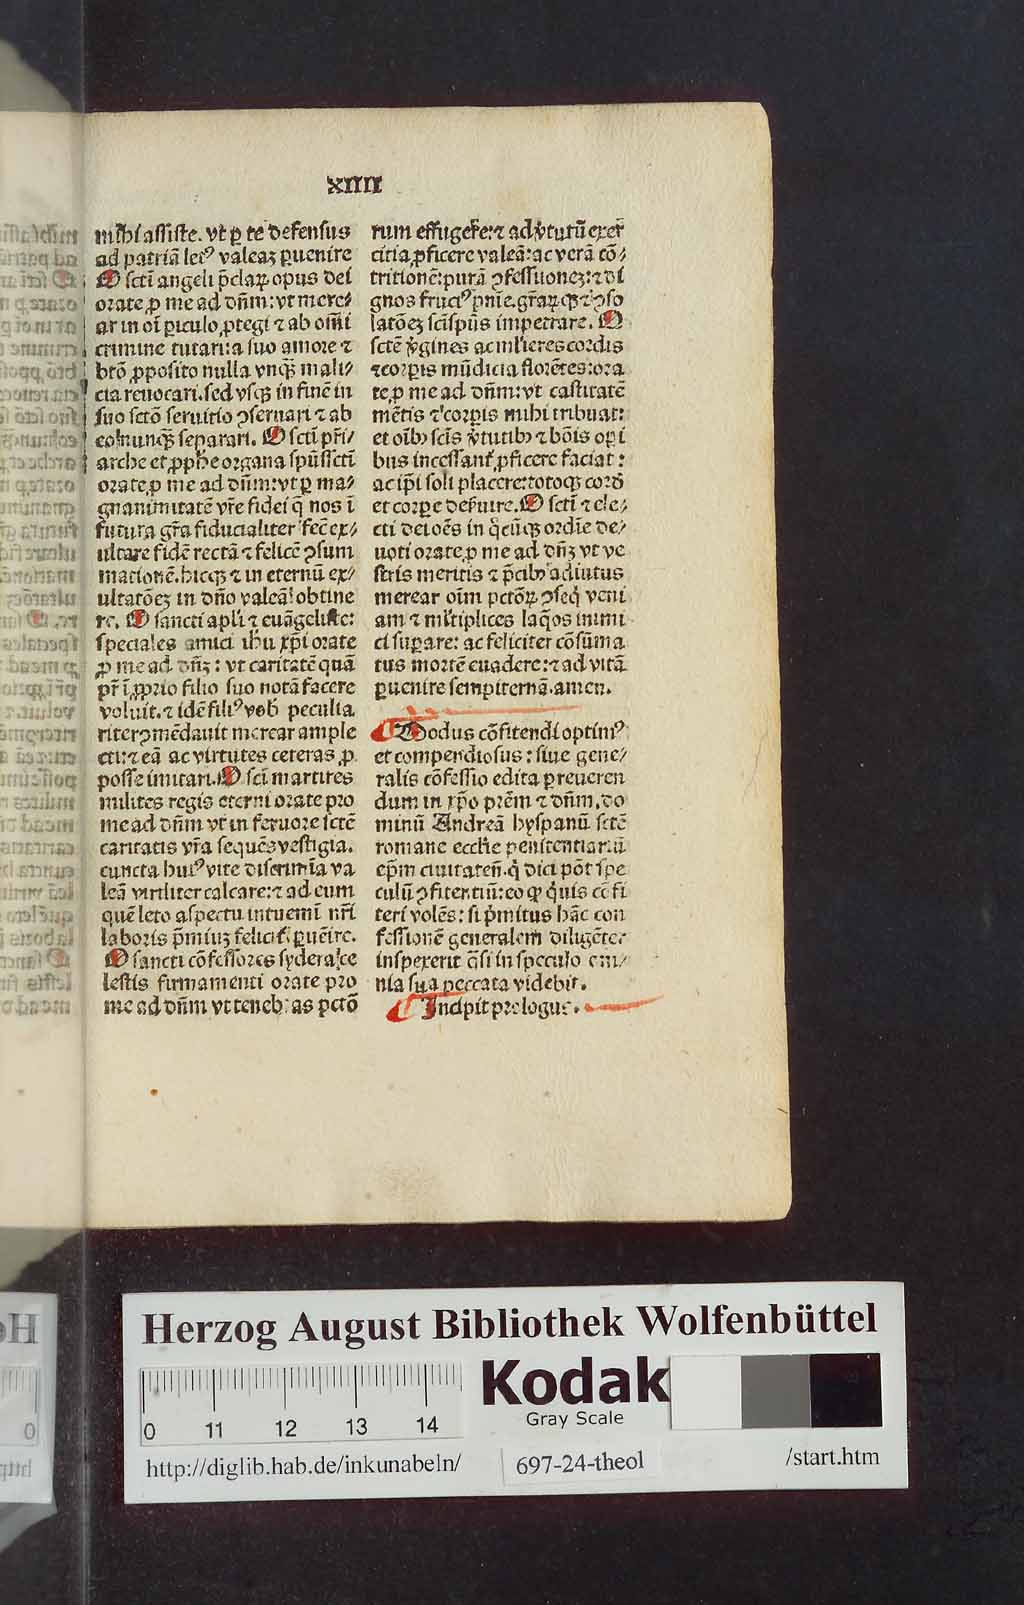 xiiii
mihi assiste. vt ꝑ te defensus
ad patriã letꝰ valeaꝫ ꝑuenire
O scti angeli p̃claꝝ opus dei
orate ꝓ me ad dñm: vt mere⸗
ar in oĩ ꝑiculo ꝓtegi ⁊ ab oĩni
crimine tutari: a suo amore ⁊
btõ ꝓposito nulla vnqꝫ̃ mali⸗
cia reuocari. sed vsqꝫ in finẽ in
suo sctõ seruitio ꝯseruari ⁊ ab
eo nunqꝫ̃ separari. O scti pr̃i⸗
arche et ꝓphe organa spũssicti
orate ꝓ me ad dñm: vt ꝑ ma⸗
gnanimitatẽ vr̃e fidei q̃ nos ĩ
futura gr̃a fiducialiter fec̃ ex⸗
ultare fidẽ rectã ⁊ felicẽ ꝯsum
mationẽ. hicqꝫ ⁊ in eternũ ex⸗
ultatõeꝫ in dño valeã obtine
re. O sancti apl̃i ⁊ euãgeliste:
speciales amici ihũ xp̃i orate
ꝓ me ad dñꝫ: vt caritatẽ quã
pr̃ ĩ ꝓprio filio suo notã facere
voluit. ⁊ idẽ filiꝰ vob̃ peculia
riter ꝯmẽdauit merear ample
cti: ⁊ eã ac virtutes ceteras ꝓ
posse imitari. O scti martires
milites regis eterni orate pro
me ad dñm vt in feruore sctẽ
caritatis vr̃a sequẽs vestigia.
cuncta huiꝰ vite discrimĩa va
leã viriliter calcare: ⁊ ad eum
quẽ leto aspectu intuemĩ nr̃i
laboris p̃miuꝫ felicit̃ ꝑuẽire.
O sancti cõfessores syderal ce
lestis firmamenti orate pro
me ad dñm vt tenebras pctõ
rum effugere: ⁊ ad v̓tutũ exer
citia ꝓficere valeã: ac verã cõ⸗
tritionẽ: purã ꝯfessioneꝫ: ⁊ di
gnos fructꝰ pñie. gr̃aꝝ qꝫ ⁊ ꝯso
latõeꝫ sc̃i spũs impetrare. O
sctẽ v̓gines ac mulieres cordis
⁊ corꝑis mũdicia florẽtes: ora
te ꝓ me ad dñm: vt castitatẽ
mẽtis ⁊ corꝑis mihi tribuat:
et oĩbꝰ scis v̓tutibꝰ ⁊ bõis oꝑi
bus incessant̃ ꝓficere faciat:
ac ip̃i soli placere: totoqꝫ cord̓
et corꝑe deſuire. O scti ⁊ ele⸗
cti dei oẽs in q̃cũqꝫ ordĩe de⸗
uoti orate ꝓ me ad dñꝫ vt ve
stris meritis ⁊ p̃cibꝰ adiutus
merear oĩm pctõꝝ ꝯseq̇ veni
am ⁊ multiplices laq̃os inimi
ci suꝑare: ac feliciter cõsũma
tus mortẽ euadere: ⁊ ad vitã
ꝑuenire sempiternã. amen.
Modus cõfitendi optimꝰ
et compendiosus: siue gene⸗
ralis cõfessio edita ꝑ reueren
dum in xp̃o prẽm ⁊ dñm. do
minũ Andreã hyspanũ sctẽ
romane ecclie penitentiariũ
ep̃m ciuitateñ. q̃ dici põt spe
culũ ꝯfitentiũ: eo ꝙ q̓uis cõfi
teri volẽs: si p̓mitus hãc con
fessionẽ generalem diligẽter
inspexerit q̃si in speculo om⸗
nia sua peccata videbit.
Incipit prologus.
Herzog August Bibliothek Wolfenbüttel
0 11 12 13 14
Kodak
Gray Scale
http://diglib.hab.de/inkunabeln/
697-24-theol
/start.htm